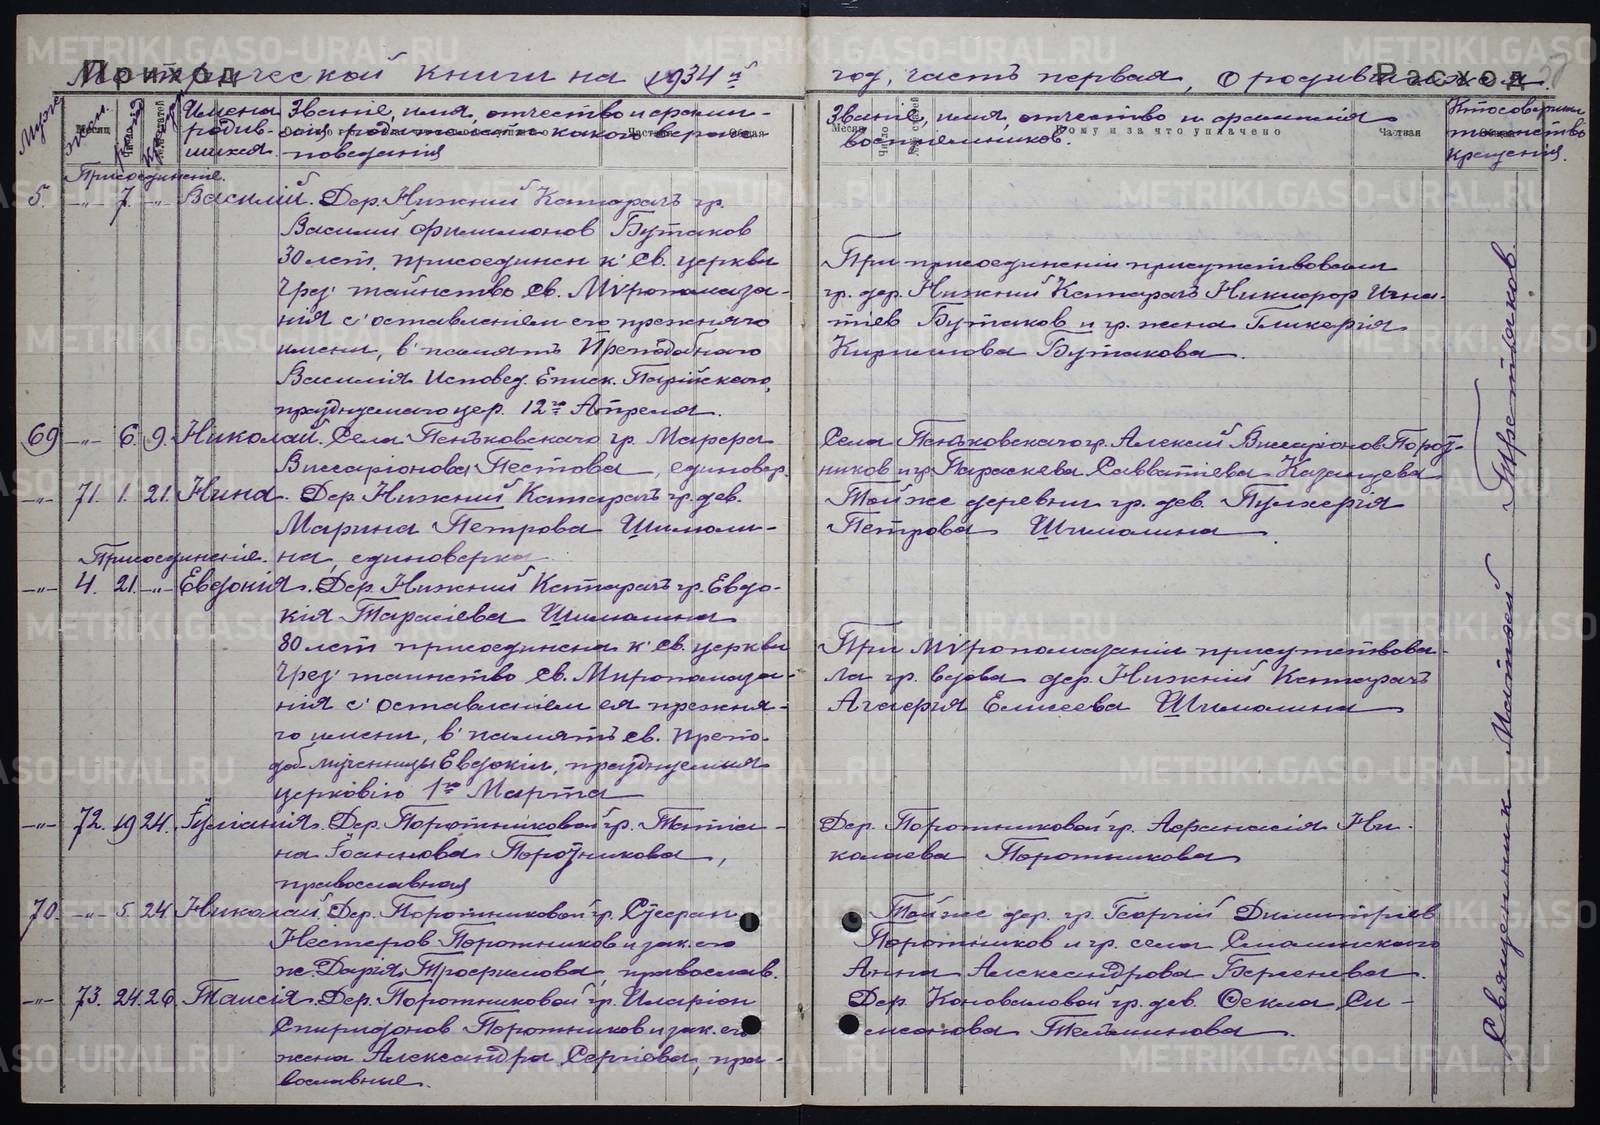 Метрической книги на 1934й год, часть первая, о родившихся.
Приход
Расход
Имена родив-
шихся.
Званіе, имя, отчество и фамилія
родителей и какого вероис-
поведанія
Званіе, имя, отчество и фамилія
воспріемников.
Кто совершил
таинство
крещенія.
Присоединеніе.
5. -"- 7. -"- Василій. Дер. Нижний Катарачъ гр.
Василий Филимонов Бутаков
30 лет. присоединен к св. церкви
чрез таинство св. Мѵропомаза-
нія с оставленіем его прежняго
имени, в память Преподобнаго
Василія Исповед. Еписк. Парійскаго,
празднуемаго цер. 12го Апреля.
При присоединеніи присутствовали
гр. дер. Нижний Катарачъ Никифор Игна-
тіев Бутаков и гр. жена Гликерія
Кирилова Бутакова.
69 -"- 6. 9. Николай. Села Пеньковскаго гр. Марфа
Виссаріонова Пестова, единовер.
Села Пеньковскаго гр. Алексей Виссаріонов Порот-
ников и гр. Параскева Савватіева Казанцева
-"- 71. 1. 21. Нина. Дер. Нижний Катарачъ гр. дев.
Марина Петрова Шималина, единоверка
Той же деревни гр. дев. Пулхерія
Петрова Шималина.
Присоединеніе.
-"- 4. 21. -"- Евдокія. Дер. Нижний Катарачъ гр. Евдо-
кія Тарасіева Шималина
80 лет присоединена к св. церкви
чрез таинство св. Миропомаза-
нія с оставленіем ея прежня-
го имени, в память св. Препо-
доб. мученицы Евдокіи, празднуемыя
церковію 1го Марта
При Мѵропомазаніи присутствова-
ла гр. вдова дер. Нижний Катарачъ
Агафія Елисеева Шималина
-"- 72. 19 24. Іуліанія. Дер. Поротниковой гр. Татіа-
на Іоаннова Поротникова,
православная
Дер. Поротниковой гр. Афанасія Ни-
колаева Поротникова
70. -"- 5. 24. Николай. Дер. Поротниковой гр. Сферан
Нестеров Поротников и зак. его
ж. Дарія Трофимова, православ.
Той же дер. гр. Георгій Димитріев
Поротников и гр. села Смолинскаго
Анна Александрова Берсенева.
-"- 73. 24. 26. Таисія. Дер. Поротниковой гр. Иларіон
Спиридонов Поротников и зак. его
жена Александра Сергіева, пра-
вославные.
Дер. Коноваловой гр. дев. Фекла Си-
мсонова Тельминова.
Священник Матфей Третьяков.
METRIKI.GASO-URAL.RU